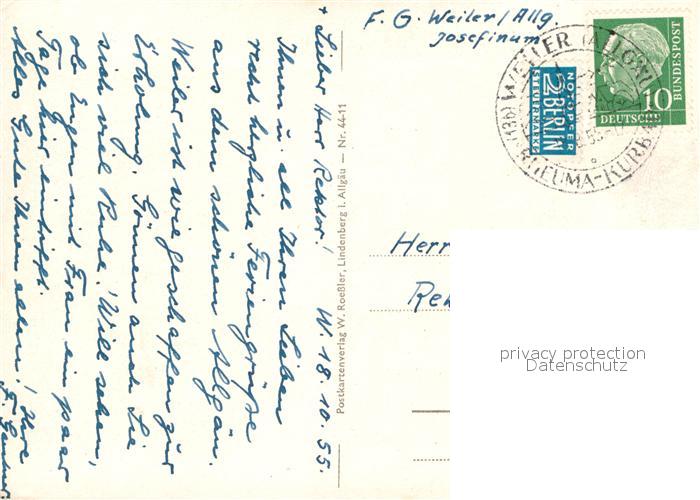 F. G. Weiler / Allg.
Josefinum
WEILER
RHEUMA-KURB
NOTOPFER
2 BERLIN
STEUERMARKE
10
DEUTSCHE
BUNDESPOST
Herr
Re
privacy protection
Datenschutz
Postkartenverlag W. Roeßler, Lindenberg i. Allgäu — Nr. 44-11
W. 18. 10. 55.
+ Lieber Herr Rektor!
Ihnen u. all Ihren Lieben
recht herzliche Feriengrüße
aus dem schönen Allgäu.
Weiler ist wie geschaffen zur
Erholung. Gönnen auch Sie
sich viel Ruhe! Will sehen,
ob Eugen mit Frau ein paar
Tage hier eintrifft.
Alles Gute Ihnen allen! Ihre